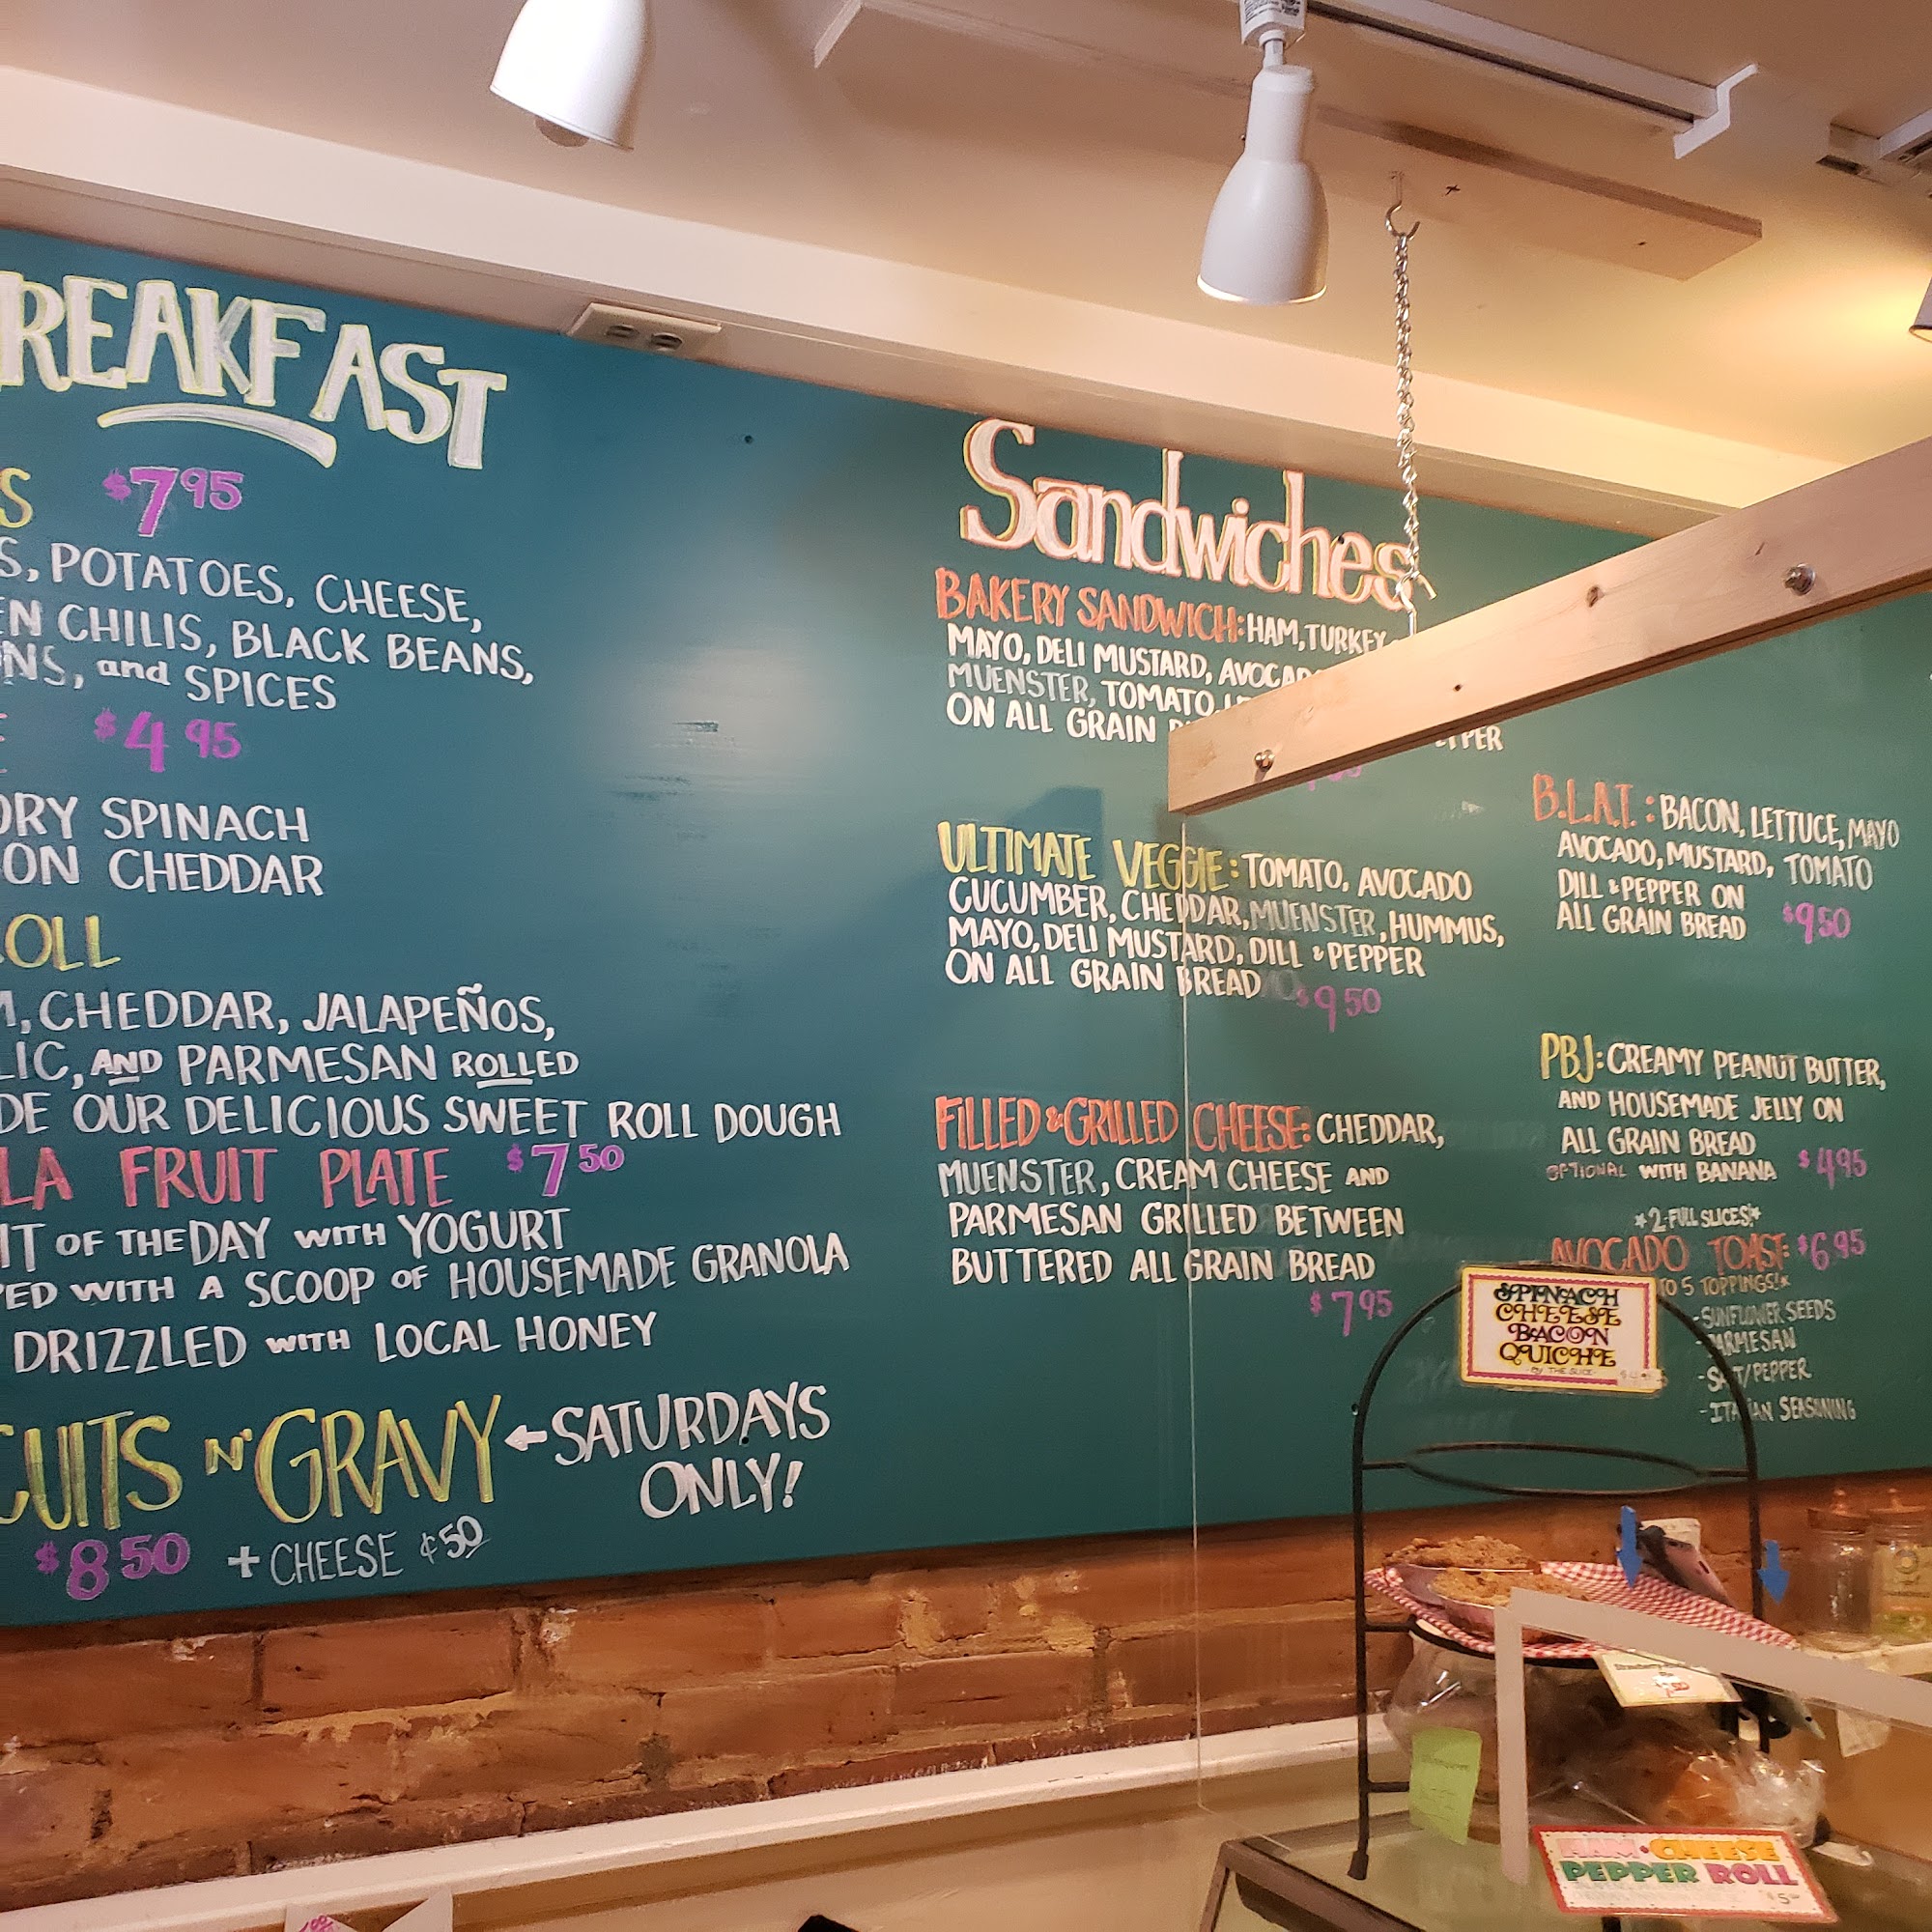 REAKFAST
S $7.95
S, POTATOES, CHEESE,
EN CHILIS, BLACK BEANS,
NS, and SPICES
$4.95
ORY SPINACH
ON CHEDDAR
OLL
M, CHEDDAR, JALAPEÑOS,
LIC, AND PARMESAN ROLLED
DE OUR DELICIOUS SWEET ROLL DOUGH
LA FRUIT PLATE $7.50
IT OF THE DAY WITH YOGURT
PED WITH A SCOOP OF HOUSEMADE GRANOLA
DRIZZLED WITH LOCAL HONEY
CUITS N' GRAVY ← SATURDAYS
ONLY!
$8.50 + CHEESE ¢50
Sandwiches
BAKERY SANDWICH: HAM, TURKEY
MAYO, DELI MUSTARD, AVOCAD
MUENSTER, TOMATO, LE
ON ALL GRAIN
PER
ULTIMATE VEGGIE: TOMATO, AVOCADO
CUCUMBER, CHEDDAR, MUENSTER, HUMMUS,
MAYO, DELI MUSTARD, DILL & PEPPER
ON ALL GRAIN BREAD $9.50
FILLED & GRILLED CHEESE: CHEDDAR,
MUENSTER, CREAM CHEESE AND
PARMESAN GRILLED BETWEEN
BUTTERED ALL GRAIN BREAD
$7.95
B.L.A.T.: BACON, LETTUCE, MAYO
AVOCADO, MUSTARD, TOMATO
DILL & PEPPER ON
ALL GRAIN BREAD $9.50
PBJ: CREAMY PEANUT BUTTER,
AND HOUSEMADE JELLY ON
ALL GRAIN BREAD
OPTIONAL WITH BANANA $4.95
*2 FULL SLICES!*
AVOCADO TOAST: $6.95
TO 5 TOPPINGS!*
-SUNFLOWER SEEDS
PARMESAN
-SALT/PEPPER
-ITALIAN SEASONING
SPINACH
CHEESE
BACON
QUICHE
BY THE SLICE
HAM & CHEESE
PEPPER ROLL